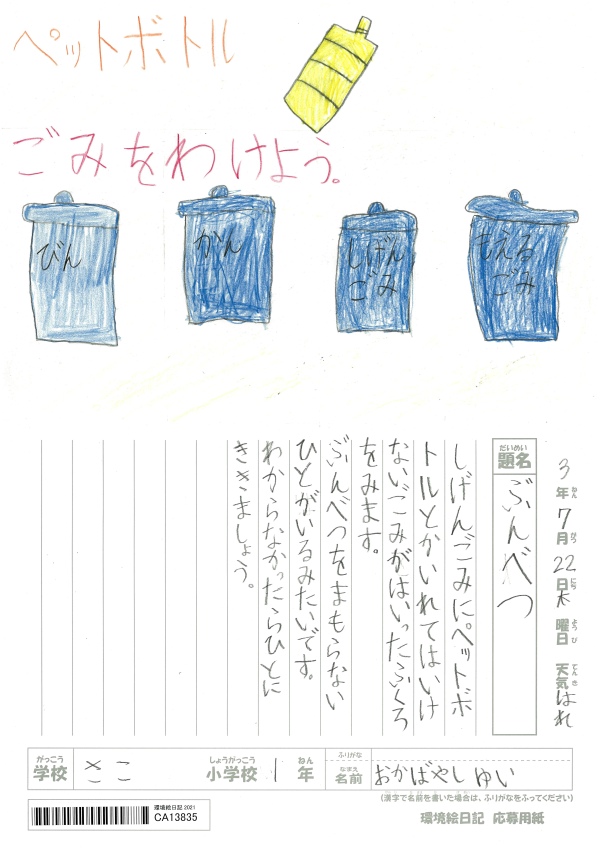 ペットボトル
ごみをわけよう。
びん
かん
しげん
ごみ
もえる
ごみ
3年ねん7月がつ22日にち木曜日ようび 天気てんき はれ
だいめい
題名
ぶんべつ
しげんごみにペットボ
トルとかいれてはいけ
ないごみがはいったふくろ
をみます。
ぶんべつをまもらない
ひとがいるみたいです。
わからなかったらひとに
ききましょう。
がっこう
学校
さこ
しょうがっこう
小学校
1
ねん
年
ふりがな
なまえ
名前
おかばやし ゆい
(漢字で名前を書いた場合は、ふりがなをふってください)
環境絵日記 2021
CA13835
環境絵日記 応募用紙